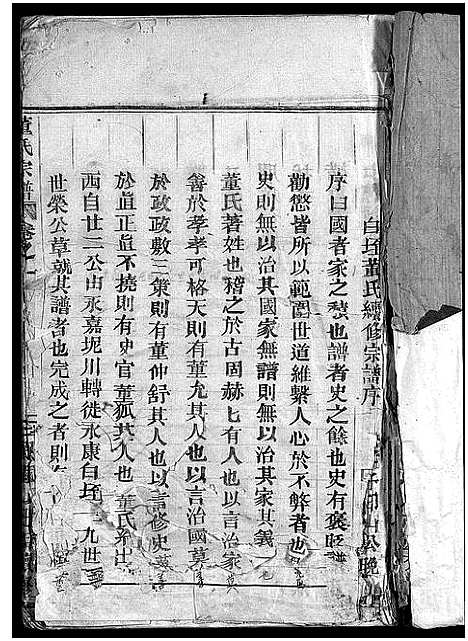 白垤董氏續修宗譜序
序曰國者家之積也譜者史之餘也史有褒貶譜
勸懲皆所以範圍世道維繫人心於不弊者也
史則無以治其國家無譜則無以治其家其義
董氏著姓也稽之於古固赫匕有人也以言治家莫
善於孝孝可格天則有董允其人也以言治國莫
於政政敷三策則有董仲舒其人也以言修史莫
於直正直不撓則有史官董狐其人也 董氏系出
西自廿二公由永嘉坭川轉徙永康白垤 九世
世榮公草就其譜者也完成之者則
董氏宗譜